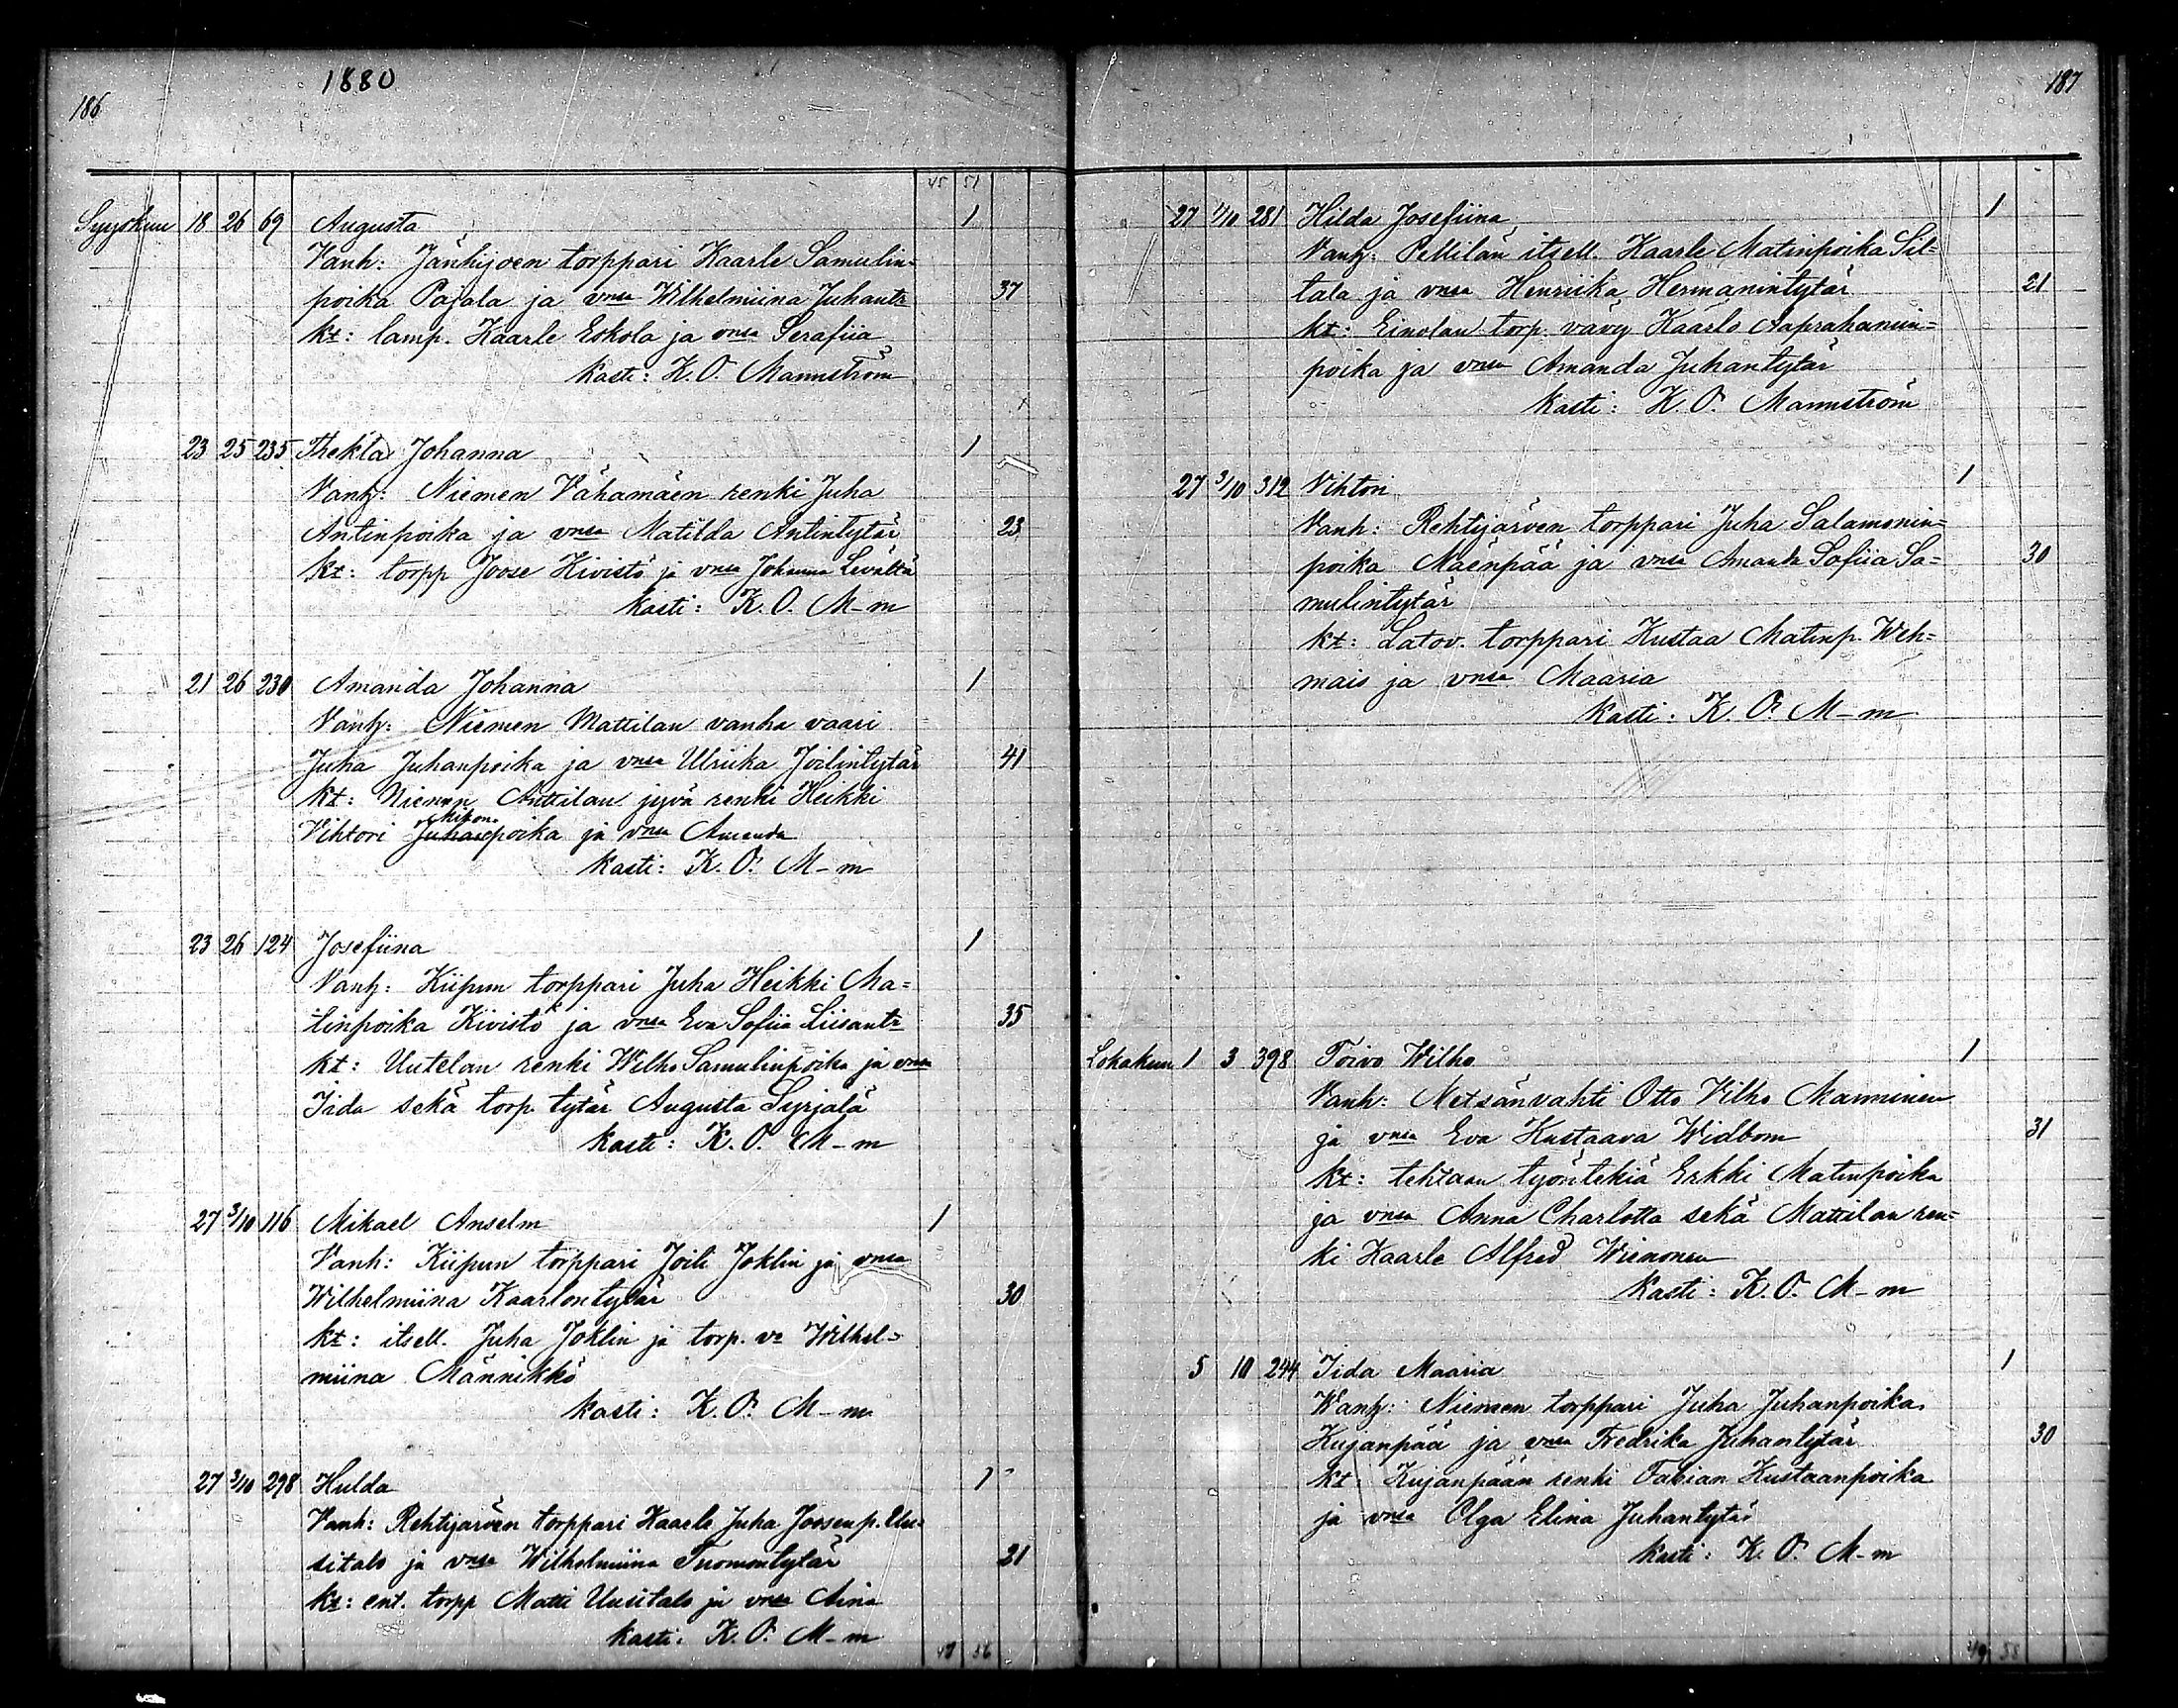 1880
186
45 51
Syyskuu 18 26 69 Augusta 1
Vanh: Jänhijoen torppari Kaarle Samulin-
poika Pajala ja vnsa Wilhelmiina Juhantr 37
kt: lamp. Kaarle Eskola ja vnsa Serafiia
Kasti: K. O. Mannström
23 25 235 Thekla Johanna 1
Vanh: Niemen Vähämäen renki Juha
Antinpoika ja vnsa Matilda Antintytär 23
kt: torpp Joose Kivistö ja vnsa Johanna
Kasti: K. O. M-m
21 26 230 Amanda Johanna 1
Vanh: Niemen Mattilan vanha vaari
Juha Juhanpoika ja vnsa Ulriika Joilintytär 41
kt: Niemen Anttilan jyvä renki Heikki
Vihtori Juhanpoika ja vnsa Amanda
Kasti: K. O. M-m
23 26 124 Josefiina 1
Vanh: Kiipun torppari Juha Heikki Ma=
tinpoika Kivistö ja vnsa Eva Sofiia Liisantr 35
kt: Uutelan renki Wilho Samulinpoika ja vnsa
Iida sekä torp. tytär Augusta Syrjälä
Kasti: K. O. M-m
27 3/10 116 Mikael Anselm 1
Vanh: Kiipun torppari Joili Joklin ja vnsa
Wilhelmiina Kaarlontytär 30
kt: itsell. Juha Joklin ja torp. vo Wilhel=
miina Männikkö
Kasti: K. O. M-m
27 3/10 298 Hulda 1
Vanh: Rehtijärven torppari Kaarle Juha Joosenp. Uu=
sitalo ja vnsa Wilhelmiina Tuomontytär 21
kt: ent. torpp Matti Uusitalo ja vnsa Aina
Kasti: K. O. M-m
56
187
27 1/10 281 Hilda Josefiina 1
Vanh: Pellilän itsell. Kaarle Matinpoika Sil=
tala ja vnsa Henriika Hermanintytär 21
kt: Einolan torp. vävy Kaarlo Aaprahamin=
poika ja vnsa Amanda Juhantytär
Kasti: K. O. Mannström
27 3/10 312 Vihtori 1
Vanh: Rehtijärven torppari Juha Salamonin=
poika Mäenpää ja vnsa Amanda Sofiia Sa= 30
mulintytär
kt: Latov. torppari Kustaa Matinp. Weh=
mais ja vnsa Maaria
Kasti: K. O. M-m
Lokakuu 1 3 398 Toivo Wilho 1
Vanh: Metsänvahti Otto Vilho Manninen
ja vnsa Eva Kustaava Widbom 31
kt: tehtaan työntekiä Erkki Matinpoika
ja vnsa Anna Charlotta sekä Mattilan ren=
ki Kaarle Alfred
Kasti: K. O. M-m
5 10 244 Iida Maaria 1
Vanh: Niemen torppari Juha Juhanpoika
Kujanpää ja vnsa Fredrika Juhantytär 30
kt: Kujanpään renki Fabian Kustaanpoika
ja vnsa Olga Elina Juhantytär
Kasti: K. O. M-m
49 58